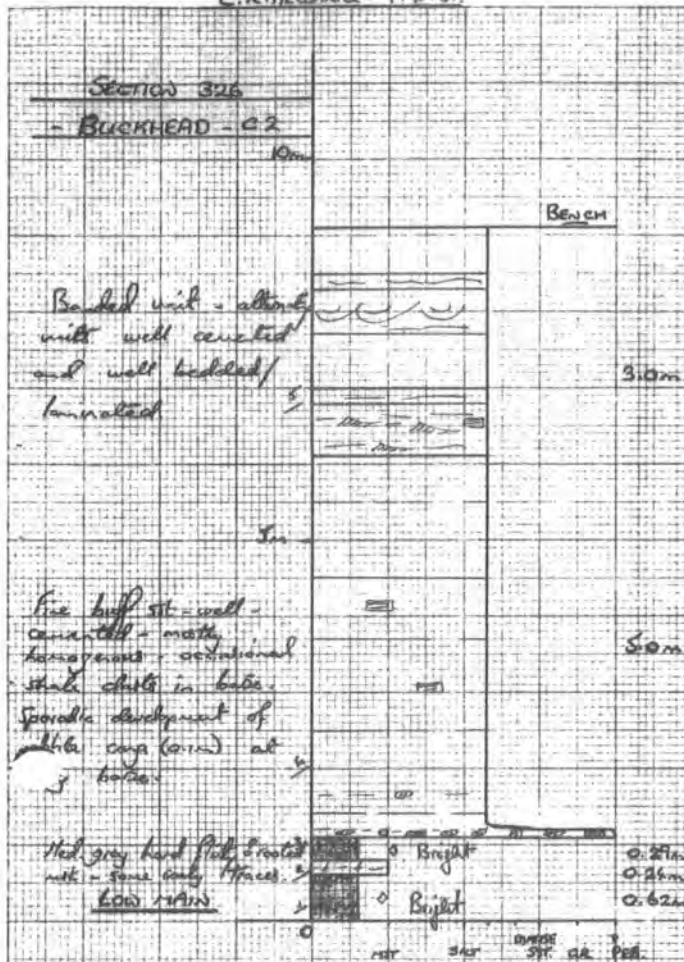 SECTION 326
- BUCKHEAD - C2
10m
BENCH
Banded unit - alternate
units well cemented
and well bedded/
laminated
3.0m
5
5m
Fine buff sst - well -
cemented - mostly
homogenous - occasional
shale clasts in base.
Sporadic development of
(0.1m) at
base.
5.0m
4
Med. grey hard rooted
- some coaly traces.
LOW MAIN
3
2
1
Bright
Bright
0.29m
0.24m
0.62m
0
MST SALT COARSE
SST. GR. PEB.